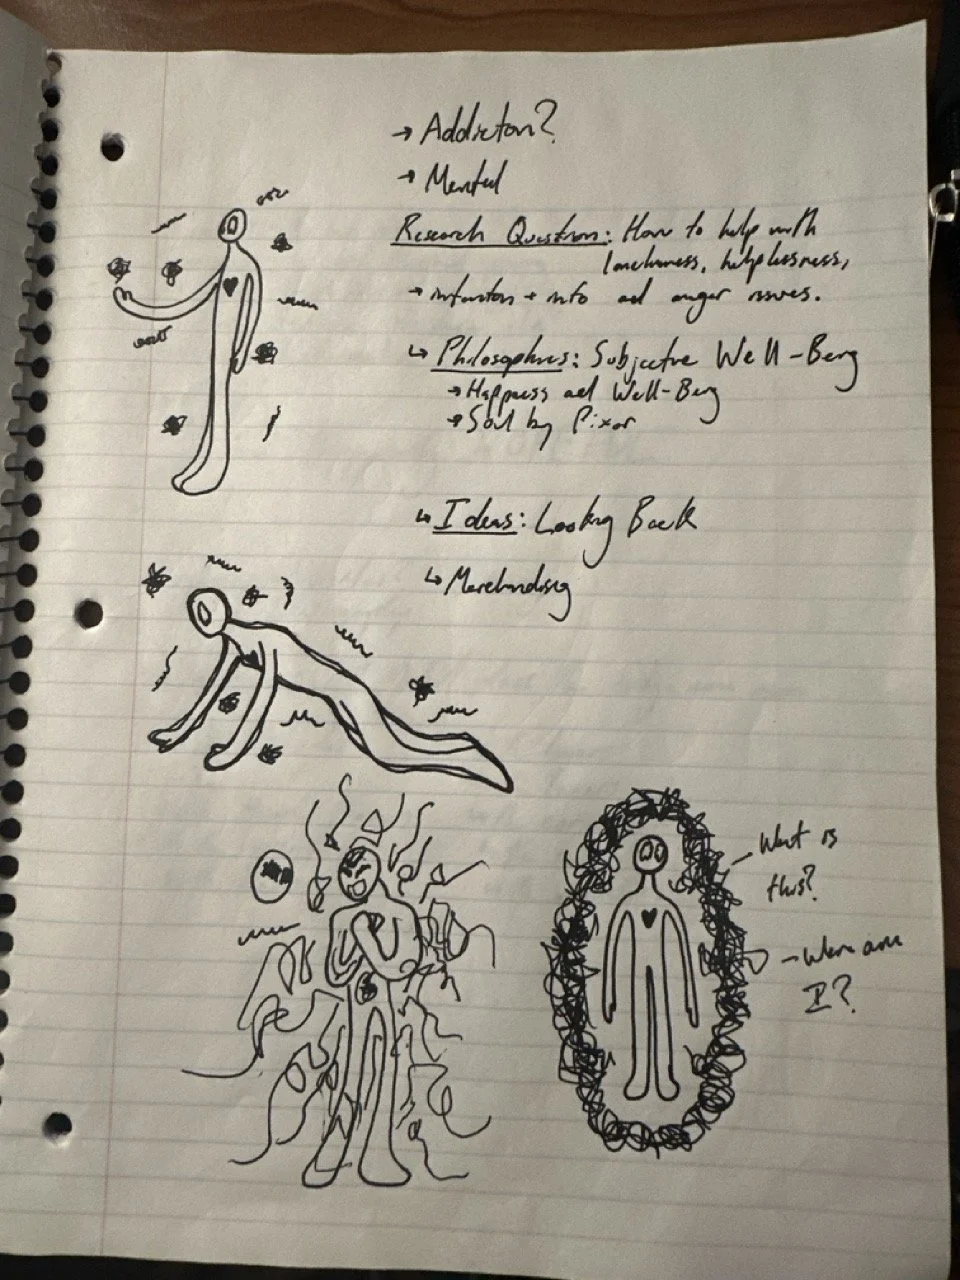 → Addicton?
→ Mental
Research Question: How to help with
loneliness, helplessness,
→ and anger issues.
↳ Philosophies: Subjective Well-Being
→ Happness and Well-Being
→ Soul by Pixar
↳ Ideas: Looking Back
↳ Merchandising
- What is
this?
- Where am
I?